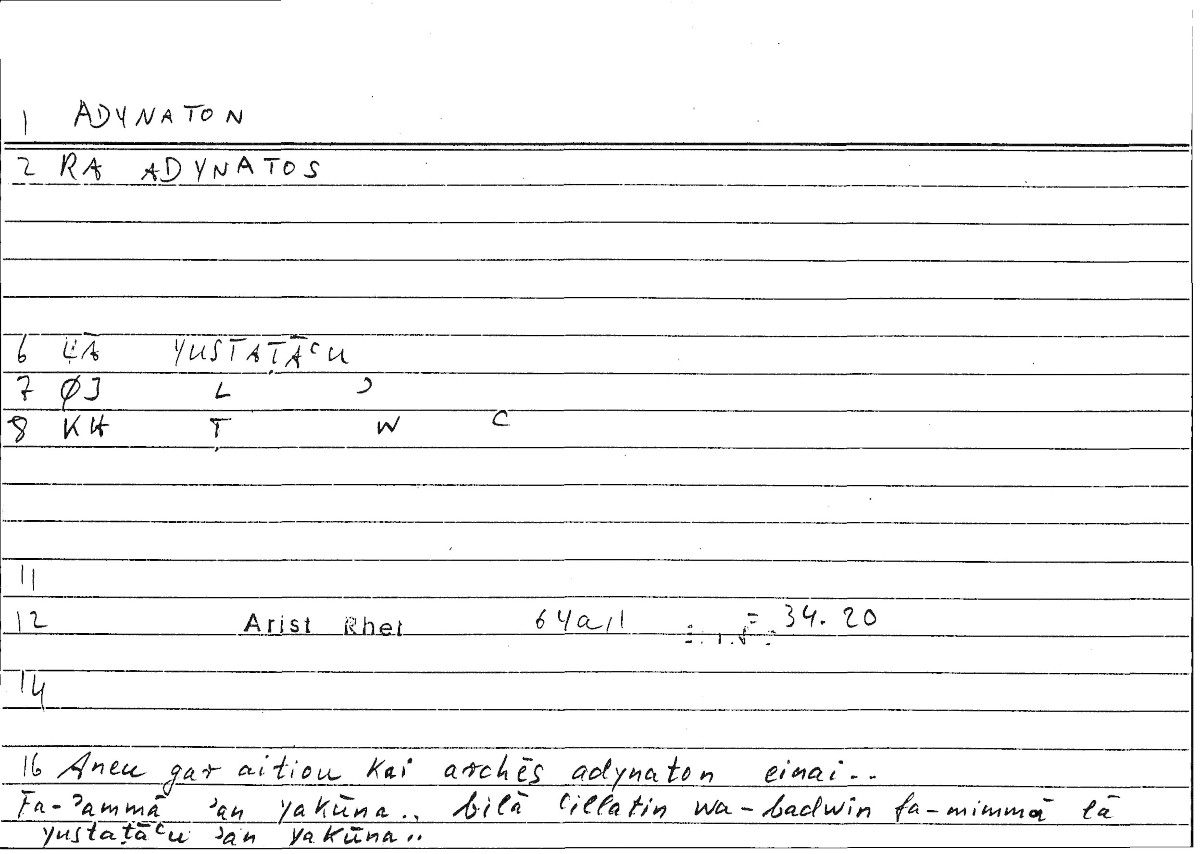 1 ADYNATON
2 RA ADYNATOS
6 LĀ YUSTAṬĀʿU
7 ØJ L ʾ
8 KH Ṭ W ʿ
11
12 Arist Rhet 64a,11 = 34.20
14
16 Aneu gar aitiou kai archēs adynaton einai..
Fa-ʾammā ʾan yakūna.. bilā ʿillatin wa-badwin fa-mimmā lā
yustaṭāʿu ʾan yakūna..